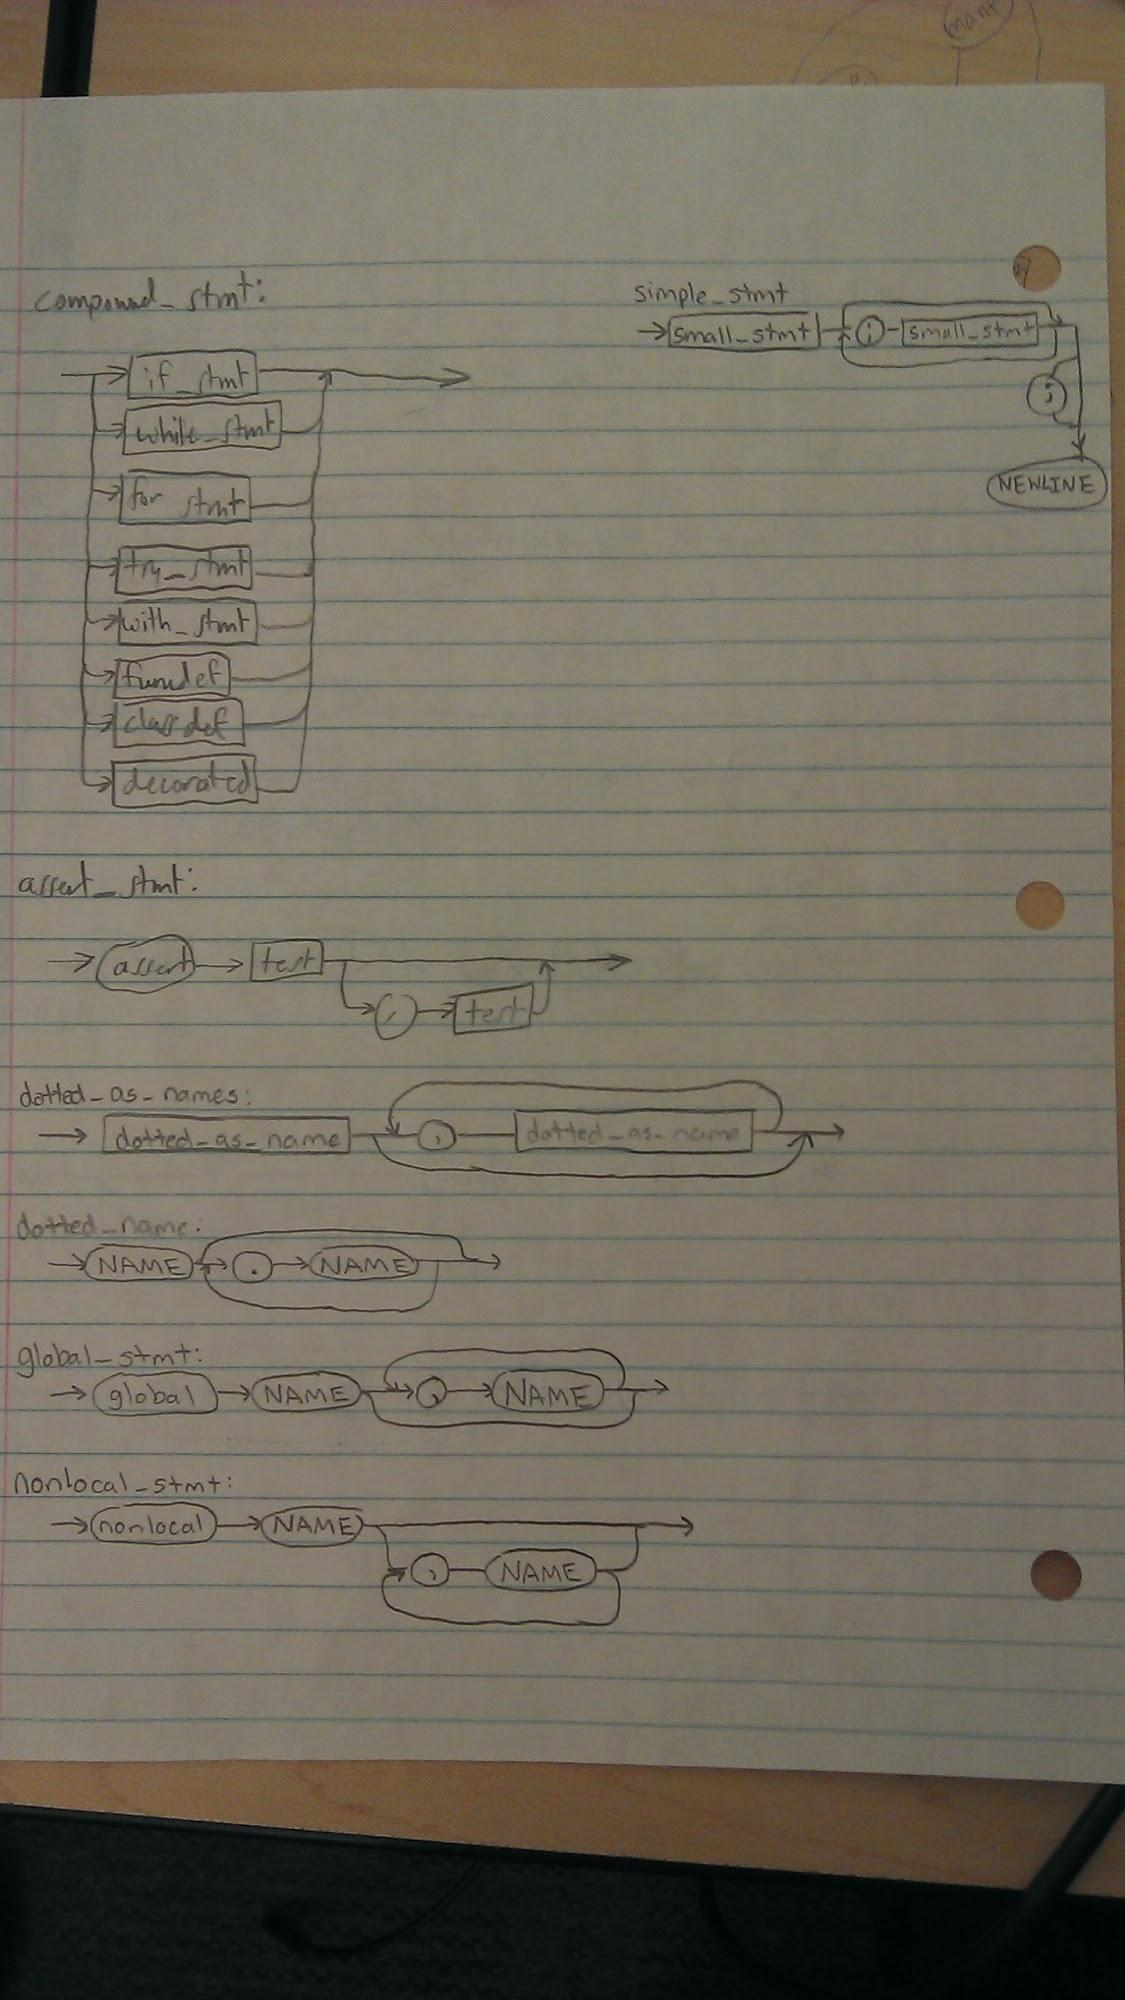 compound_stmt:
if_stmt
while_stmt
for stmt
try_stmt
with_stmt
funcdef
classdef
decorated
simple_stmt
small_stmt ; small_stmt
;
NEWLINE
assert_stmt:
assert test
, test
dotted_as_names:
dotted_as_name , dotted_as_name
dotted_name:
NAME . NAME
global_stmt:
global NAME , NAME
nonlocal_stmt:
nonlocal NAME
, NAME